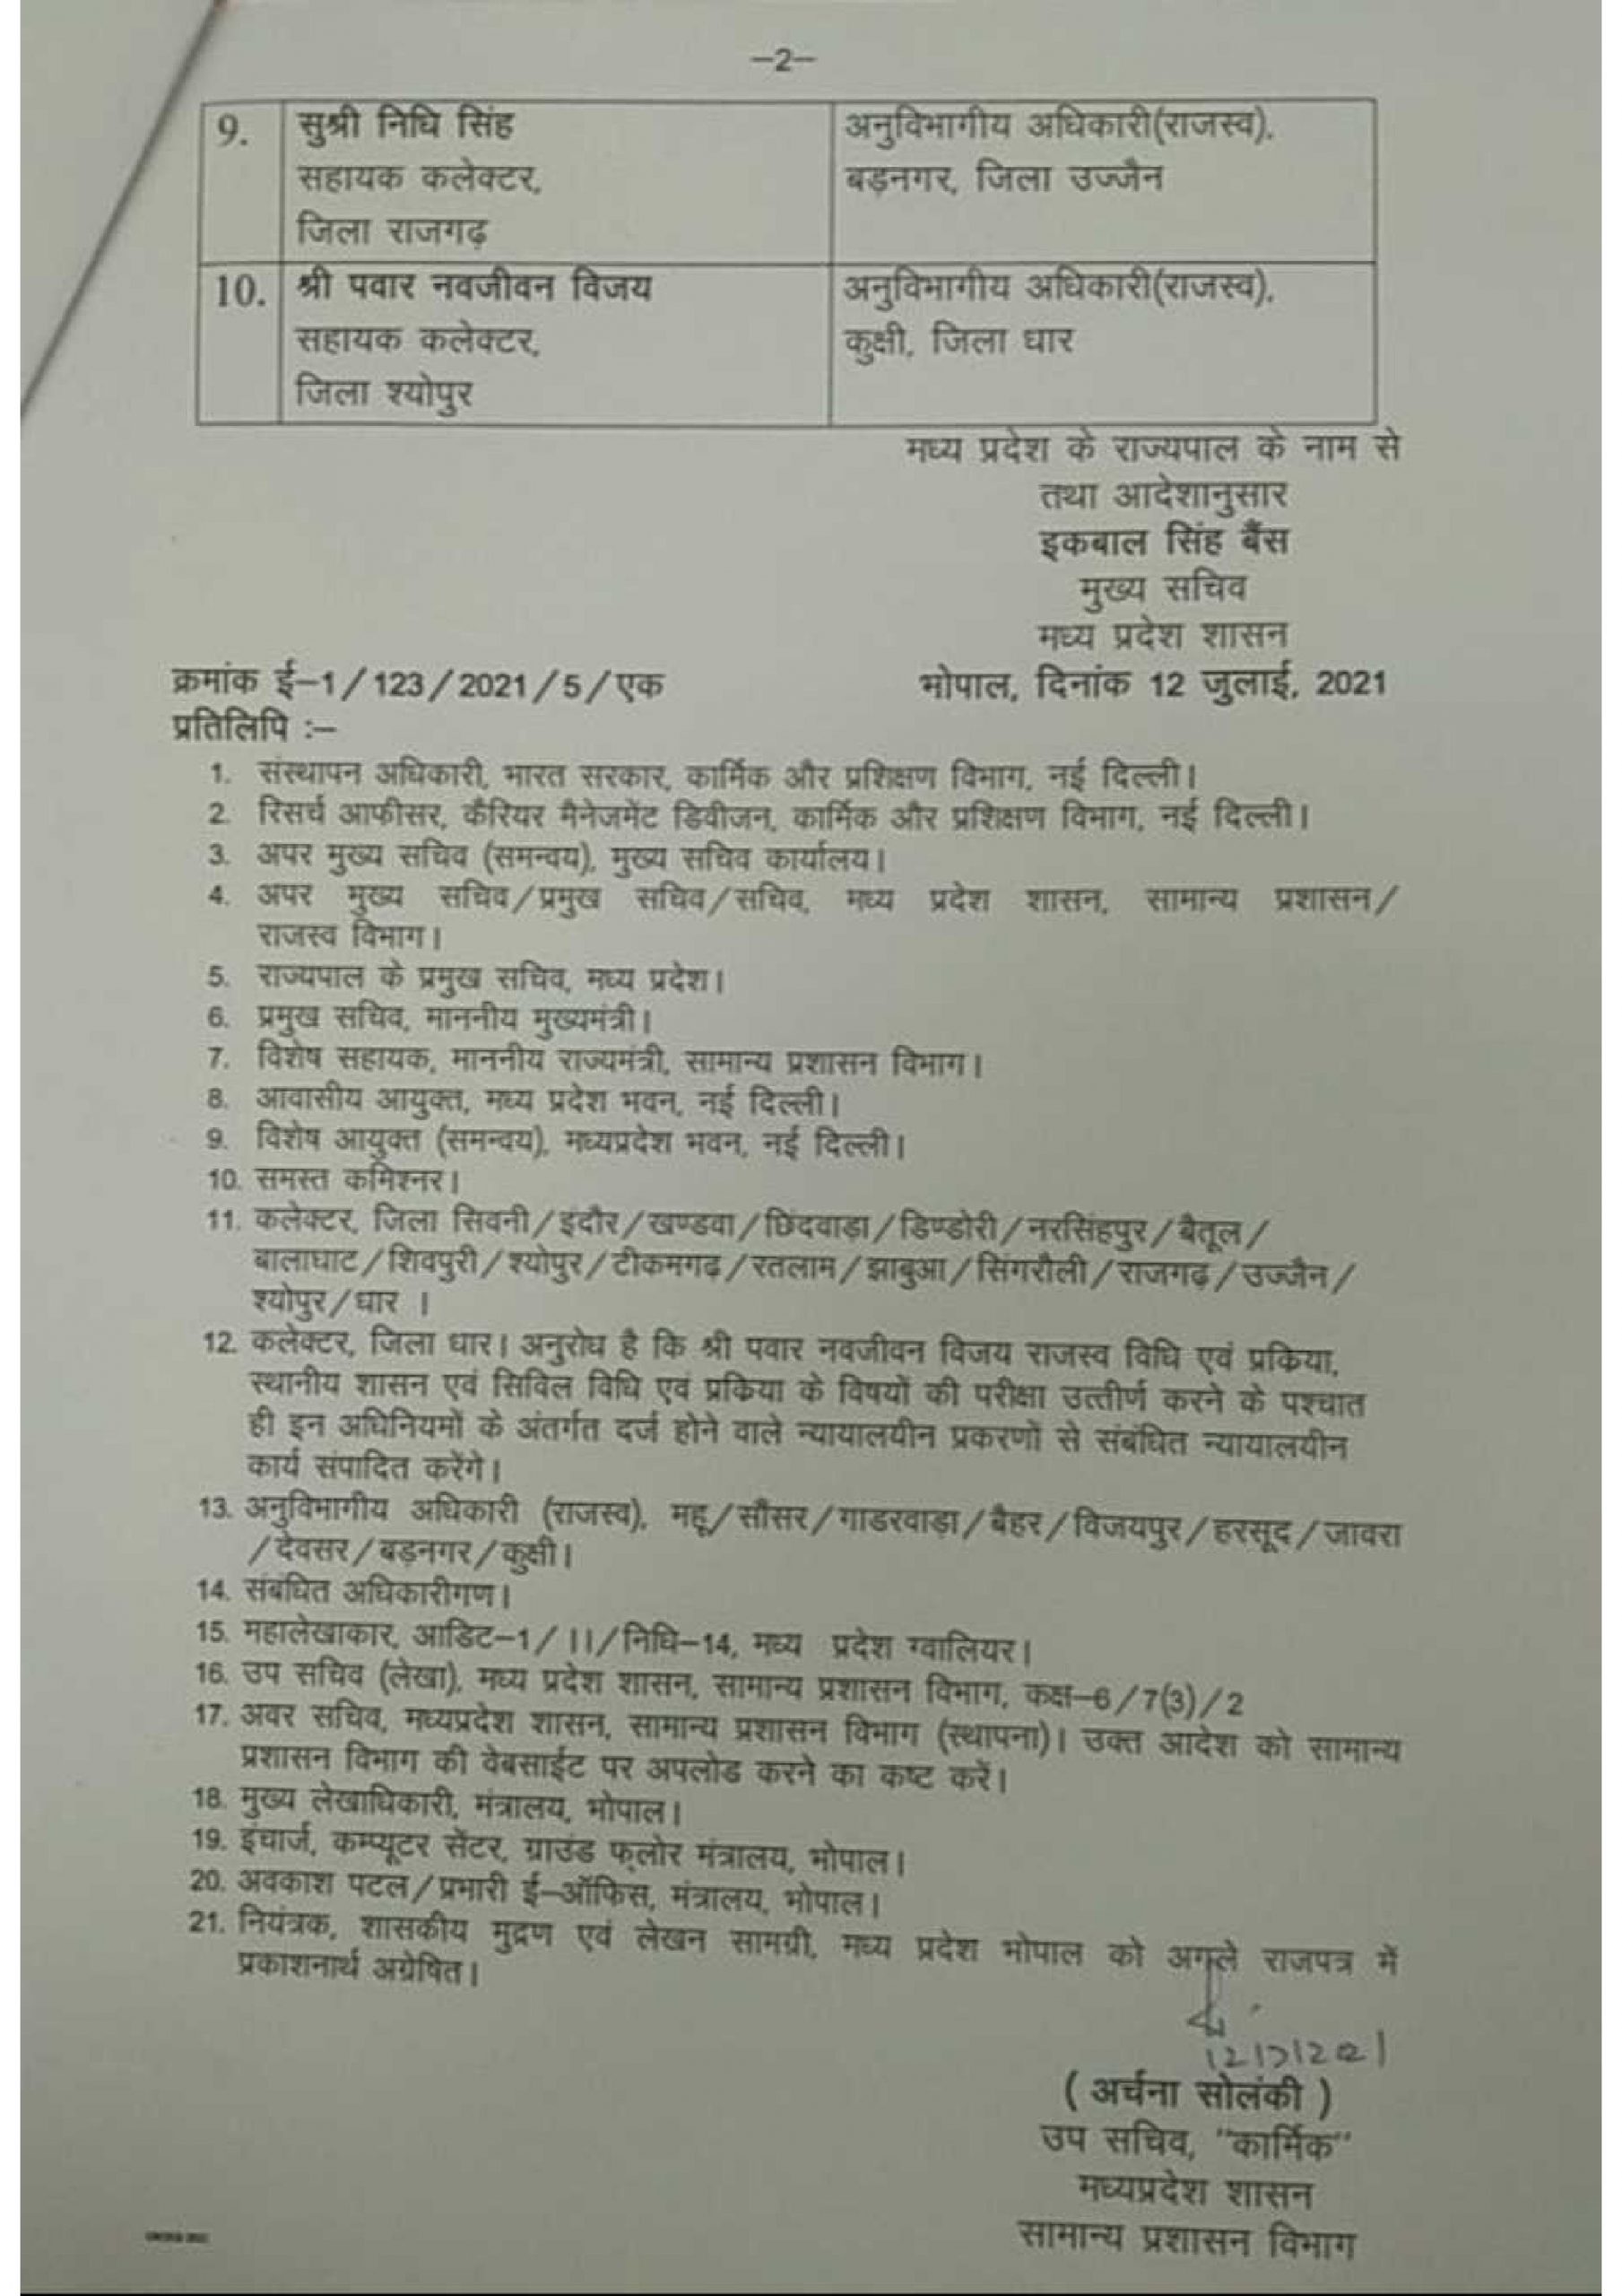 –2–
9. सुश्री निधि सिंह अनुविभागीय अधिकारी(राजस्व),
सहायक कलेक्टर, बड़नगर, जिला उज्जैन
जिला राजगढ़
10. श्री पवार नवजीवन विजय अनुविभागीय अधिकारी(राजस्व),
सहायक कलेक्टर, कुक्षी, जिला धार
जिला श्योपुर
मध्य प्रदेश के राज्यपाल के नाम से
तथा आदेशानुसार
इकबाल सिंह बैंस
मुख्य सचिव
मध्य प्रदेश शासन
क्रमांक ई–1/123/2021/5/एक भोपाल, दिनांक 12 जुलाई, 2021
प्रतिलिपि :–
1. संस्थापन अधिकारी, भारत सरकार, कार्मिक और प्रशिक्षण विभाग, नई दिल्ली।
2. रिसर्च आफीसर, कैरियर मैनेजमेंट डिवीजन, कार्मिक और प्रशिक्षण विभाग, नई दिल्ली।
3. अपर मुख्य सचिव (समन्वय), मुख्य सचिव कार्यालय।
4. अपर मुख्य सचिव/प्रमुख सचिव/सचिव, मध्य प्रदेश शासन, सामान्य प्रशासन/
राजस्व विभाग।
5. राज्यपाल के प्रमुख सचिव, मध्य प्रदेश।
6. प्रमुख सचिव, माननीय मुख्यमंत्री।
7. विशेष सहायक, माननीय राज्यमंत्री, सामान्य प्रशासन विभाग।
8. आवासीय आयुक्त, मध्य प्रदेश भवन, नई दिल्ली।
9. विशेष आयुक्त (समन्वय), मध्यप्रदेश भवन, नई दिल्ली।
10. समस्त कमिश्नर।
11. कलेक्टर, जिला सिवनी/इंदौर/खण्डवा/छिंदवाड़ा/डिण्डोरी/नरसिंहपुर/बैतूल/
बालाघाट/शिवपुरी/श्योपुर/टीकमगढ़/रतलाम/झाबुआ/सिंगरौली/राजगढ़/उज्जैन/
श्योपुर/धार ।
12. कलेक्टर, जिला धार। अनुरोध है कि श्री पवार नवजीवन विजय राजस्व विधि एवं प्रकिया,
स्थानीय शासन एवं सिविल विधि एवं प्रकिया के विषयों की परीक्षा उत्तीर्ण करने के पश्चात
ही इन अधिनियमों के अंतर्गत दर्ज होने वाले न्यायालयीन प्रकरणों से संबंधित न्यायालयीन
कार्य संपादित करेंगे।
13. अनुविभागीय अधिकारी (राजस्व), महू/सौंसर/गाडरवाड़ा/बैहर/विजयपुर/हरसूद/जावरा
/देवसर/बड़नगर/कुक्षी।
14. संबंधित अधिकारीगण।
15. महालेखाकार, आडिट–1/II/निधि–14, मध्य प्रदेश ग्वालियर।
16. उप सचिव (लेखा), मध्य प्रदेश शासन, सामान्य प्रशासन विभाग, कक्ष–6/7(3)/2
17. अवर सचिव, मध्यप्रदेश शासन, सामान्य प्रशासन विभाग (स्थापना)। उक्त आदेश को सामान्य
प्रशासन विभाग की वेबसाईट पर अपलोड करने का कष्ट करें।
18. मुख्य लेखाधिकारी, मंत्रालय, भोपाल।
19. इंचार्ज, कम्प्यूटर सेंटर, ग्राउंड फ्लोर मंत्रालय, भोपाल।
20. अवकाश पटल/प्रभारी ई–ऑफिस, मंत्रालय, भोपाल।
21. नियंत्रक, शासकीय मुद्रण एवं लेखन सामग्री, मध्य प्रदेश भोपाल को अगले राजपत्र में
प्रकाशनार्थ अग्रेषित।
12/7/2021
( अर्चना सोलंकी )
उप सचिव, "कार्मिक"
मध्यप्रदेश शासन
सामान्य प्रशासन विभाग